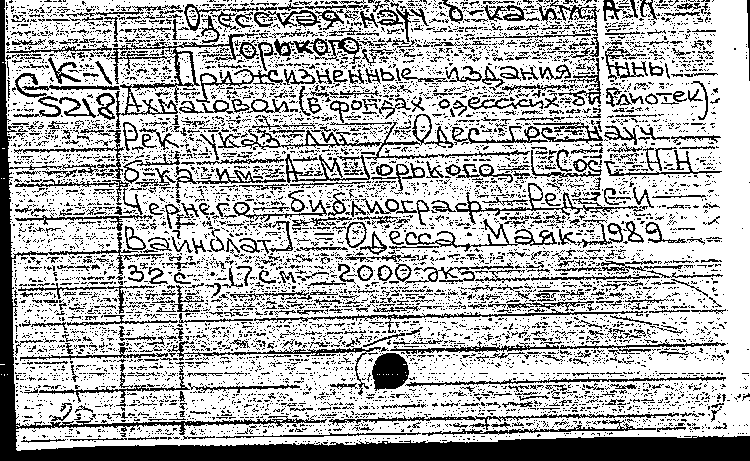 Одесская науч б-ка им А М
Горького
К-1 Прижизненные издания Анны
С 5218 Ахматовой (в фондах одесских библиотек)
Рек. указ лит / Одес гос науч
б-ка им А М Горького; [Сост Н Н
Чернего, библиограф; Ред С И
Вайнблат] — Одесса; Маяк, 1989
32 с, 17 см — 2000 экз